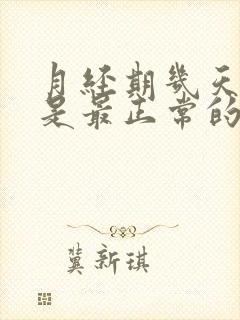 月经期几天
是最正常的
冀新琪